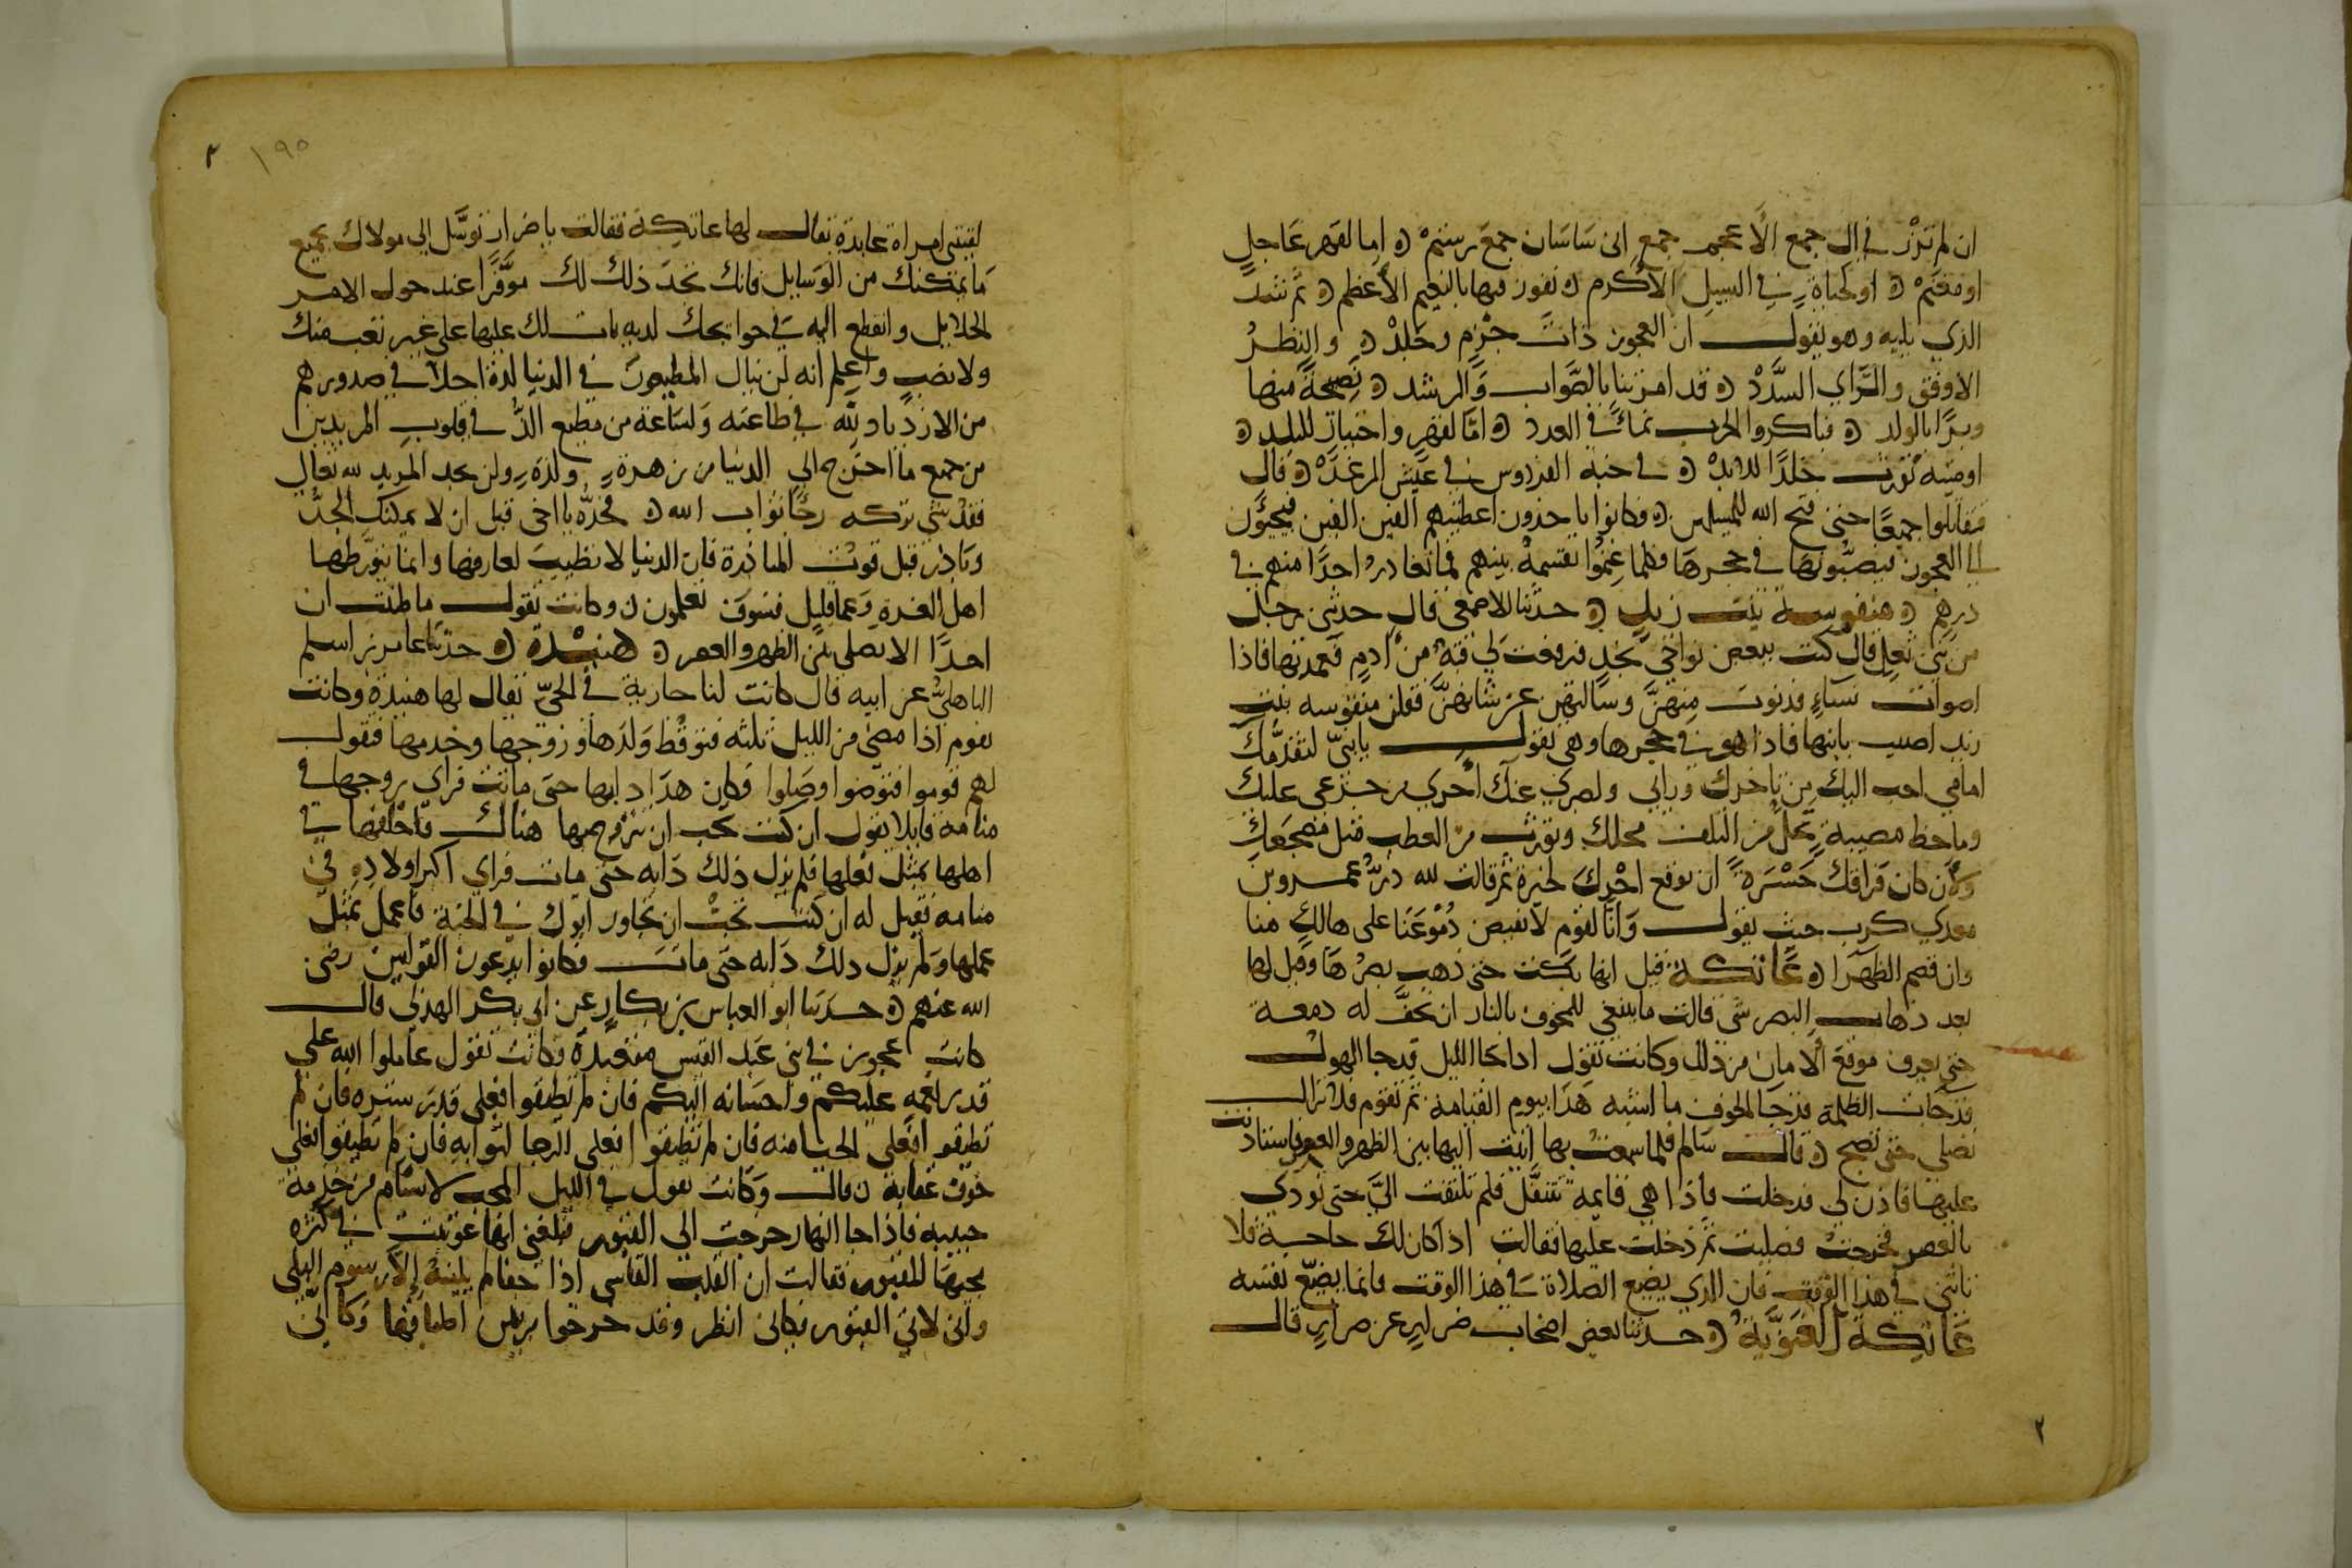 ان لم تزر في ال جمع الأعجم جمع ابن ساسان جمع رستم ٥ اما لقهر عاجل
او مغنم ٥ او لحياة في السبيل الأكرم ٥ نفوز فيها بالنعيم الأعظم ٥ ثم شد
الذي يليه وهو يقول ان العجوز ذات حزم وجلد ٥ والنظر
الاوفق والراي السدد ٥ قد امرتنا بالصواب والرشد ٥ نصيحة منها
وبرا بالولد ٥ فباكروا الحرب نماء في العدد ٥ اما لقهر واحتياز للبلد ٥
او ميتة تورث خلدا للابد ٥ في جنة الفردوس في عيش الرغد ٥ قال
فقاتلوا جميعا حتى فتح الله للمسلمين ٥ فكانوا ياخذون اعطيتهم الفين الفين فيجيؤن
الى العجوز فيصبونها في حجرها فكلما غنموا تقسمه بينهم فما تغادر احدا منهم في
درهم ٥ منفوسة بنت زيد ٥ حدثنا الاصمعي قال حدثني رجل
من بني ثعل قال كنت ببعض نواحي نجد فرفعت لي قبة من ادم فعمدتها فاذا
اصوات نساء فدنوت منهن وسالتهن عن شانهن فقلن منفوسه بنت
زيد اصيب بابنها فاذا هو في حجرها وهي تقول يا بني لتقدمك
امامي احب اليك من تاخرك ورائي ولصبري عنك احرى من جزعي عليك
وما حظ مصيبة تحل من التلف محلك وتورث من العطب مثل مضجعك
ولأن كان فراقك حسرة ان توقع اجرك لخيرة ثم قالت لله در عمرو بن
معدي كرب حيث يقول وانا لقوم لا تفيض دموعنا على هالك منا
وان قصم الظهرا ٥ عاتكة قيل انها بكت حتى ذهب بصرها وقيل لها
بعد ذهاب البصر شي قالت ما ينبغي للمخوف بالنار ان تجف له دمعة
حتى يعرف موقع الامان من ذلك وكانت تقول اذا جا الليل قد جا الهول
قد جات الظلمة قد جا الخوف ما اشبه هذا بيوم القيامة ثم تقوم فلا تزال
تصلي حتى تصبح ٥ قال سالم فلما سمعت بها اتيت اليها بين الظهر والعصر فاستاذنت
عليها فاذن لي فدخلت فاذا هي قايمة تتنفل فلم تلتفت الي حتى نودي
بالعصر فخرجت فصليت ثم دخلت عليها فقالت اذا كان لك حاجة فلا
تاتني في هذا الوقت فان الذي يضيع الصلاة في هذا الوقت فانما يضيع نفسه
عاتكة الغنوية ٥ حدثنا بعض اصحاب ضرار عن ضرار قال
٢
٣
١٩٥
لقيتني امراة عابدة يقال لها عاتكة فقالت يا ضرار توسل الى مولاك بجميع
ما يمكنك من الوسايل فانك تجد ذلك لك موفرا عند حول الامر
الجلايل وانقطع اليه في حوايجك لديه يات لك عليها على غير تعب منك
ولا نصب واعلم انه لن ينال المطيعون في الدنيا لذة احلا في صدورهم
من الازدياد لله في طاعته ولساعة من مطيع الذ في قلوب المريدين
من جميع ما اخترج الى الدنيا من زهرة ولذة ولن يجد المريد لله تعالى
فقد شي تركه رجا ثواب الله ٥ فجد يا اخي قبل ان لا يمكنك الجد
وبادر قبل فوت المبادرة فان الدنيا لا تطيب لعارفها وانما يتورطها
اهل الغدرة وعما قليل فسوف تعلمون ٥ وكانت تقول ما ظننت ان
احدا الا يصلي بين الظهر والعصر ٥ هنيدة ٥ حدثنا عامر بن اسلم
الباهلي عن ابيه قال كانت لنا جارية في الحي يقال لها هنيدة وكانت
تقوم اذا مضى من الليل ثلثه فتوقظ ولدها وزوجها وخدمها فتقول
لهم قوموا فتوضوا وصلوا فكان هذا دابها حتى ماتت فراى زوجها في
منامه قايلا يقول ان كنت تحب ان تتزوجها هناك فاخلفها في
اهلها بمثل فعلها فلم يزل ذلك دابه حتى مات فراى اكبر اولاده في
منامه فقيل له ان كنت تحب ان تجاور ابوك في الجنة فاعمل بمثل
عملها ولم يزل ذلك دابه حتى مات فكانوا يدعون القوامين رضي
الله عنهم ٥ حدثنا ابو العباس بن بكار عن ابي بكر الهذلي قال
كانت عجوز في بني عبد القيس متعبدة وكانت تقول عاملوا الله على
قدر نعمه عليكم واحسانه اليكم فان لم تطيقوا فعلى قدر ستره فان لم
تطيقوا فعلى الحيا منه فان لم تطيقوا فعلى الرجا لثوابه فان لم تطيقوا فعلى
خوف عقابه ٥ قال وكانت تقول في الليل المحب لا يسام من خدمة
حبيبه فاذا جا النهار خرجت الى القبور فبلغني انها عوتبت في كثرة
مجيها المقبور فقالت ان القلب القاسي اذا جفا لم يلينه إلا رسوم البلى
واني لاتي القبور فكاني انظر وقد خرجوا من بين اطباقها وكاني